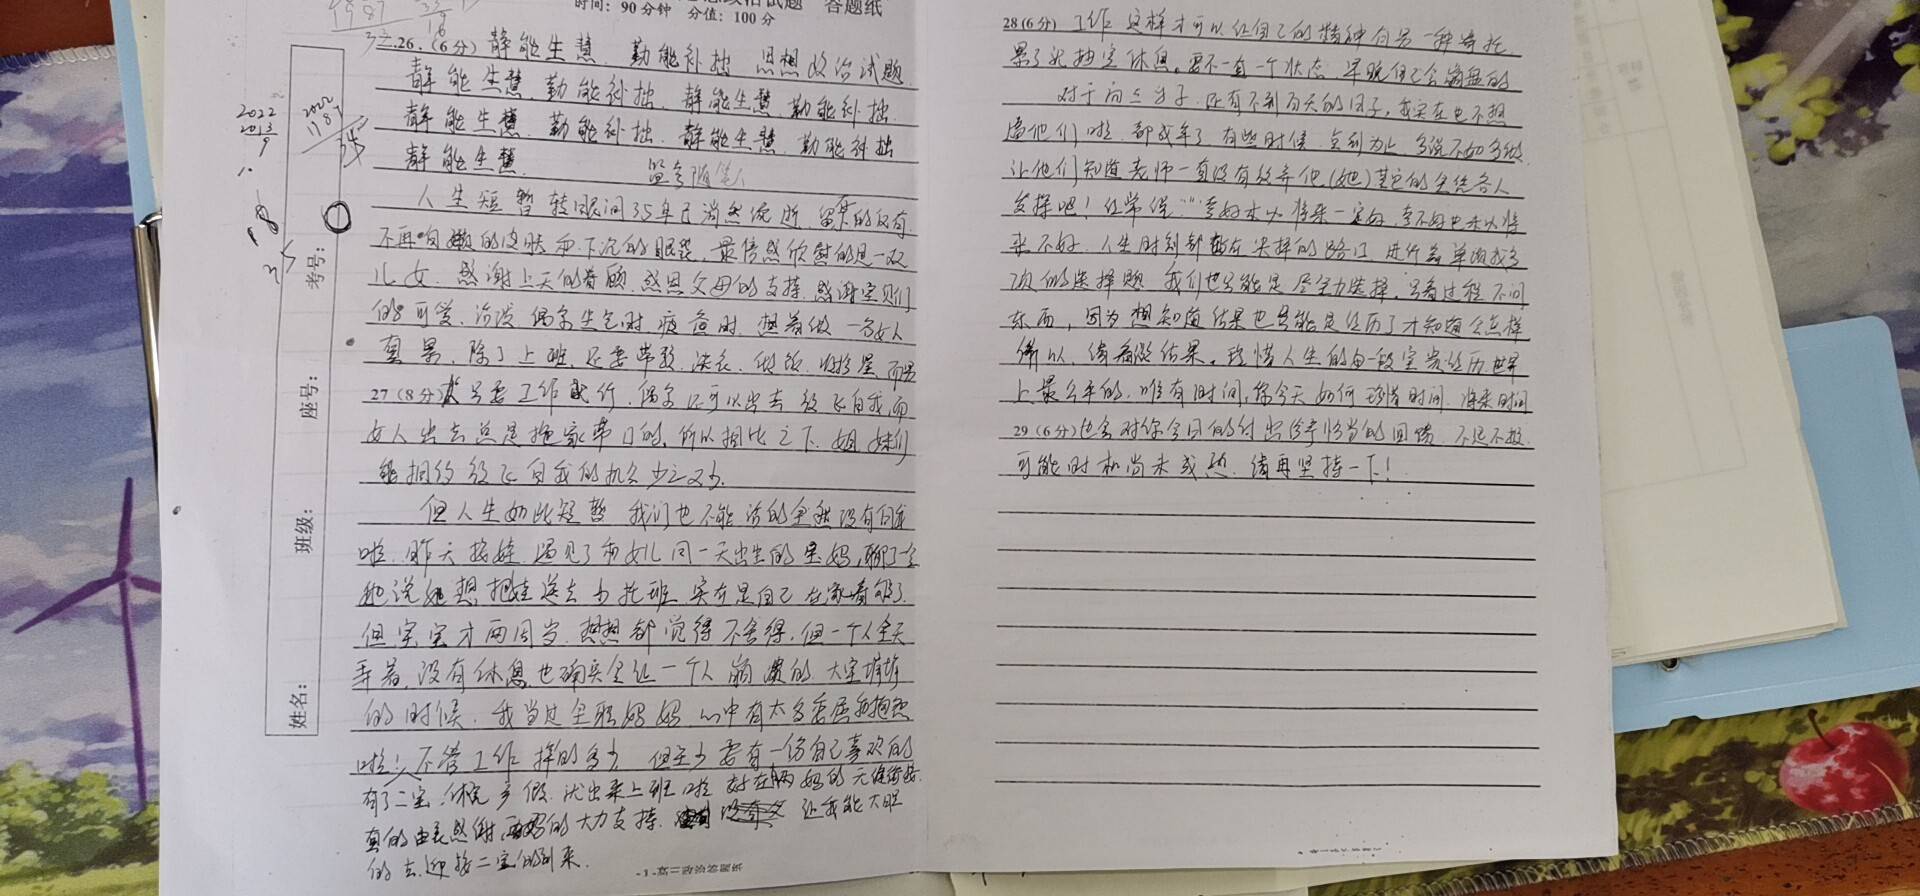 思想政治试题 答题纸
时间：90分钟 分值：100分
二.26.（6分）静能生慧 勤能补拙 思想政治试题
静能生慧 勤能补拙 静能生慧 勤能补拙
静能生慧 勤能补拙 静能生慧 勤能补拙
静能生慧 监考随笔
人生短暂 转眼间35年已消然流逝 留下的仅有
不再白嫩的皮肤和下沉的眼袋，最倍感欣慰的是一双
儿女，感谢上天的眷顾，感恩父母的支持，感谢宝贝们
的可爱、活泼 偶尔生气时、疲惫时 想着做一名女人
真累，除了上班，还要带孩、洗衣、做饭、收拾屋 而男
27（8分）人只要工作就行，偶尔还可以出去放飞自我，而
女人出去总是拖家带口的，所以相比之下，姐妹们
能拥约放飞自我的机会少之又少.
但人生如此短暂 我们也不能活的全然没有自我
啦，昨天接娃 遇见了和女儿同一天出生的宝妈，聊了会
她说她想把娃送去小托班 实在是自己在家看够了.
但宝宝才两周岁 想想都觉得不舍得，但一个人全天
弄着，没有休息，也确实会让一个人崩溃的 大宝
的时候，我当过全职妈妈 心中有太多委屈和抱怨
啦！不管工作挣的多少 但至少要有一份自己喜欢的
有了二宝，休完产假 就出来上班啦 好在两妈的无缝衔接
真的由衷感谢 两妈的大力支持 让我能大胆
的去迎接二宝的到来.
-1-高二政治答题纸
28(6分) 工作 这样才可以让自己的精神有另一种寄托
累了就抽空休息。要不一直一个状态 早晚自己会崩盘的
对于高三学子 还有不到百天的日子，我实在也不想
逼他们啦 都成年了 有些时候 点到为止 多说不如多做
让他们知道老师一直没有放弃他(她)其它的全凭各人
发挥吧！但常说：“考好未必将来一定好，考不好也未必将
来不好 人生时刻都站在关择的路口 进行着单项或多
项的选择题 我们也只能是尽全力选择，只看过程不问
东西，因为想知道结果也只能是经历了才知道会怎样
所以，请看淡结果，珍惜人生的每一段宝贵经历 世界
上最公平的，唯有时间，你今天如何珍惜时间 将来时间
29（6分）也会对你今日的付出给予恰当的回馈 不是不报
可能时机尚未成熟，请再坚持一下！
姓名：
班级：
座号：
考号：
2022
2013
9
2022
1987
35